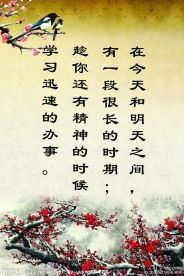 在今天和明天之间，
有一段很长的时期；
趁你还有精神的时候
学习迅速的办事。